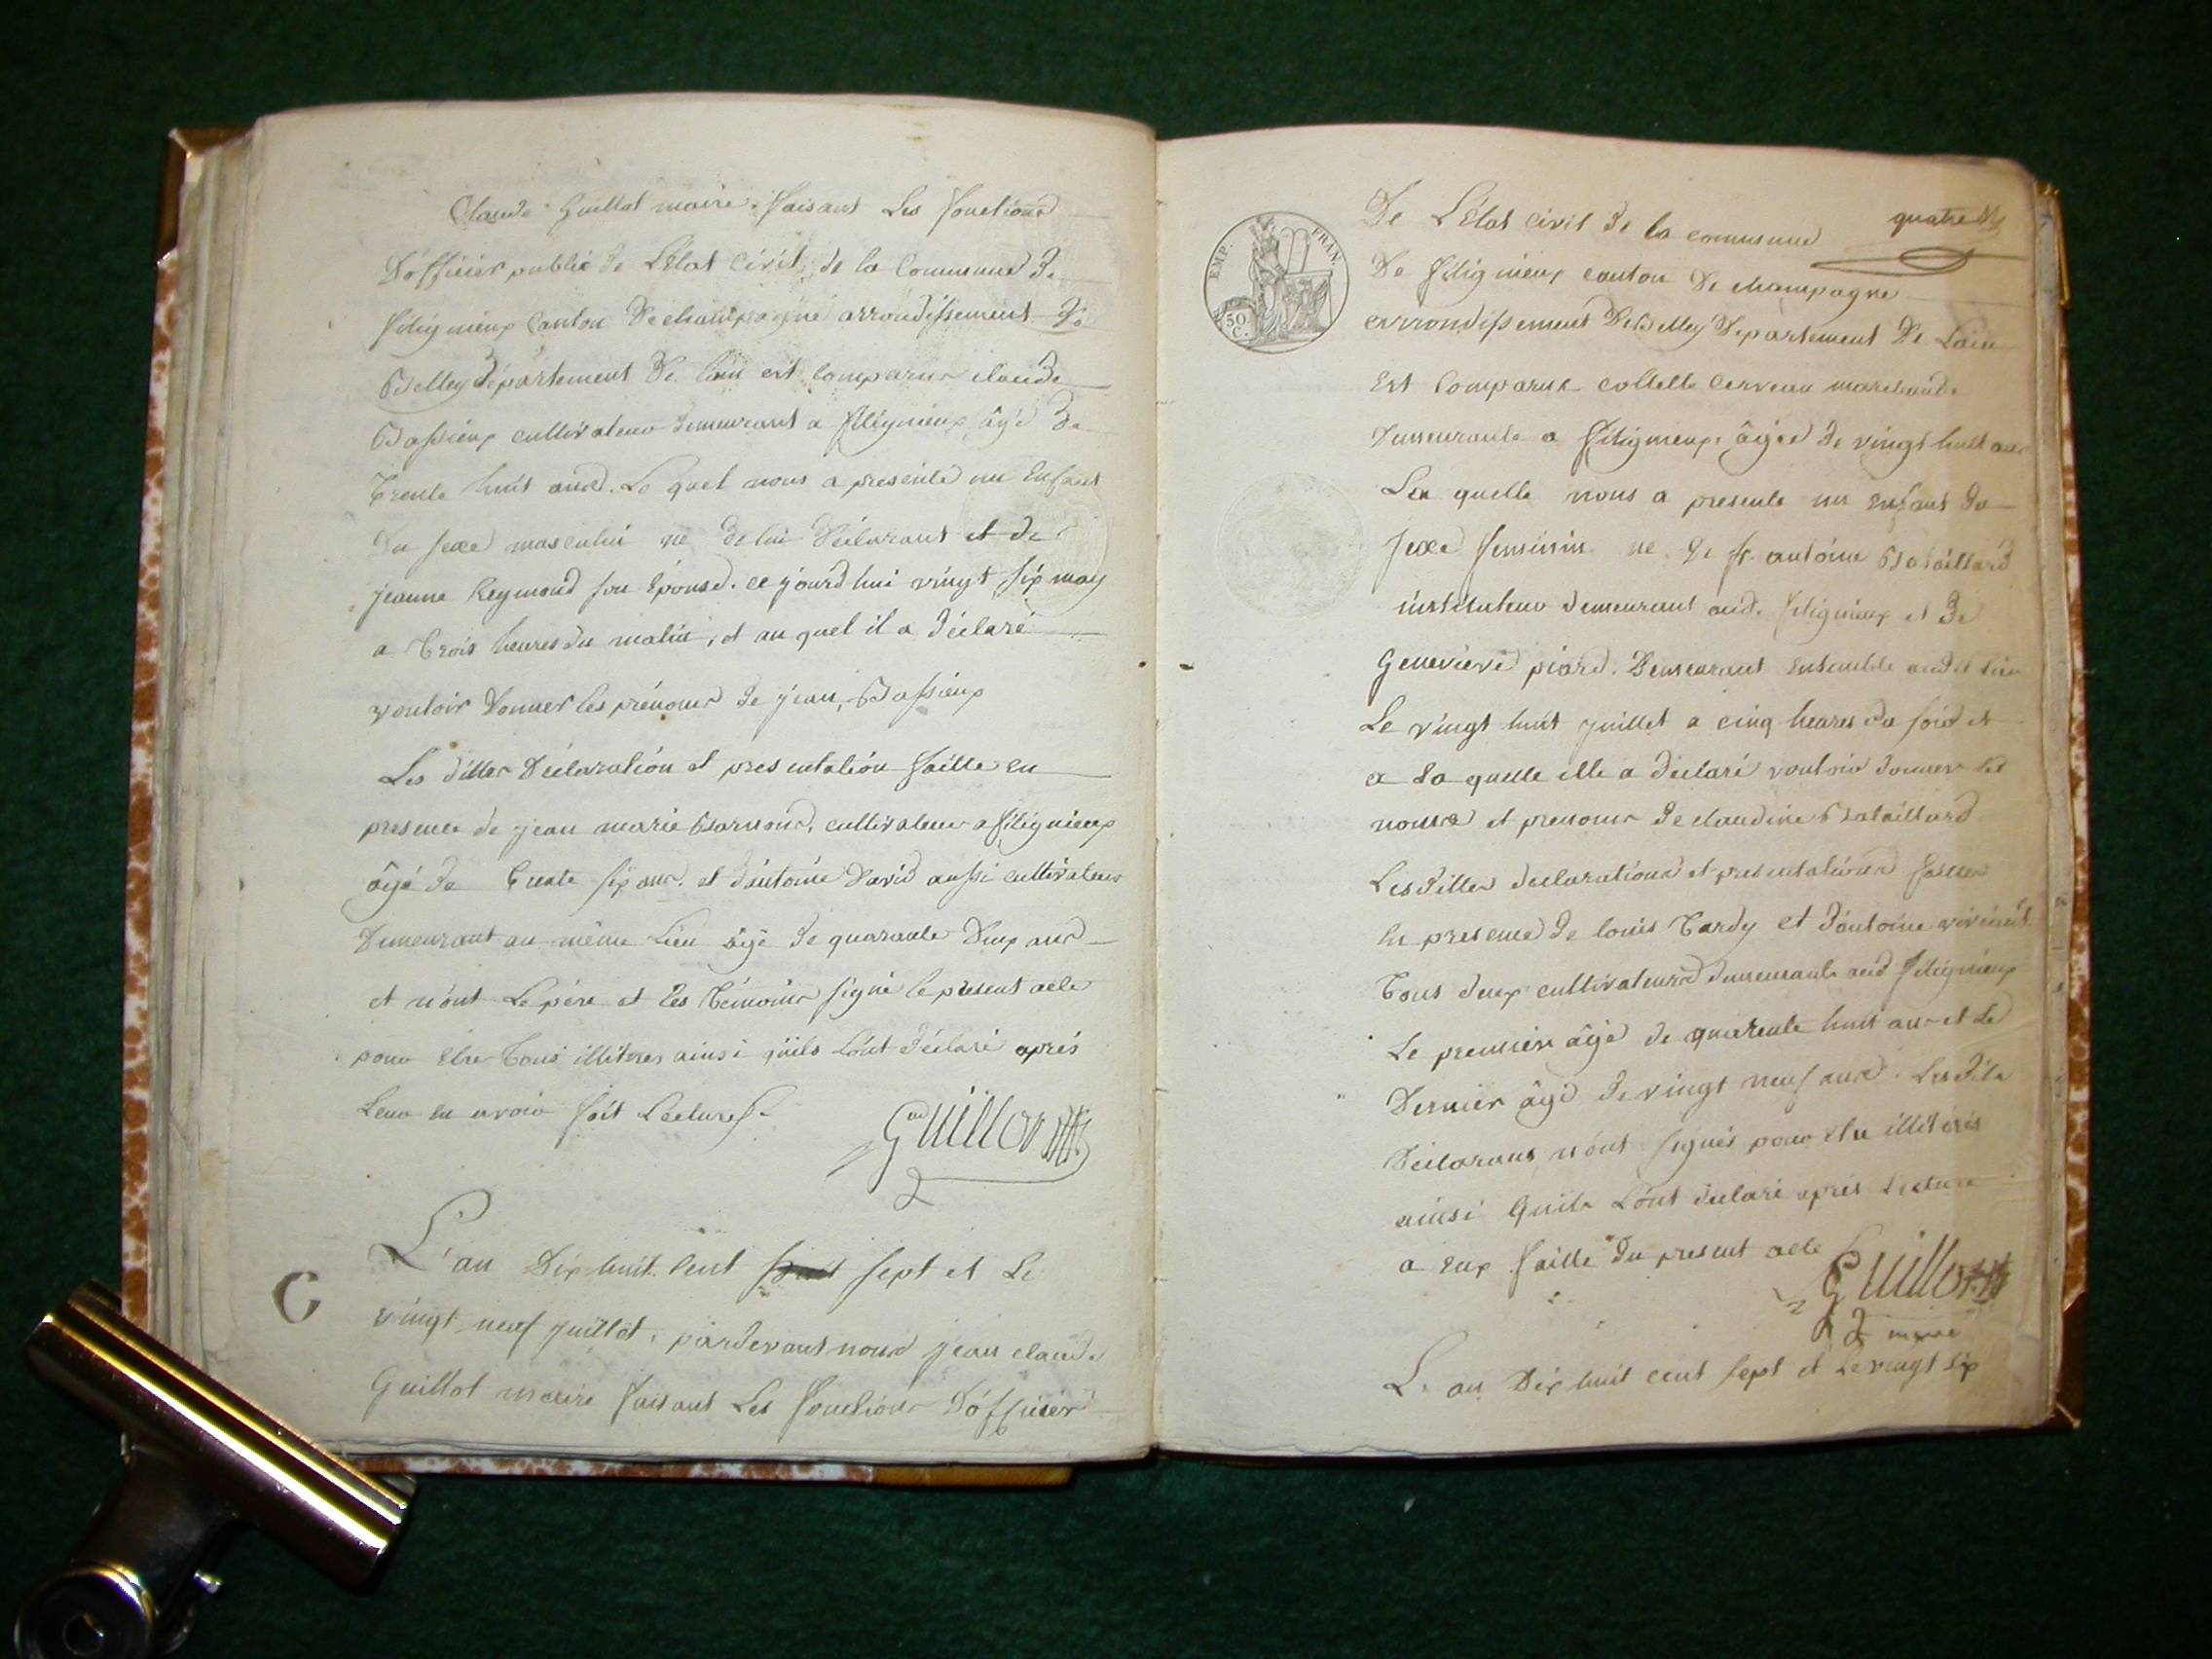 Claude Guillot maire faisant Les fonctions
D'officier public de L'état Civil de la Commune de
fitignieux Canton De champagne arrondissement De
Belley département De Lain est comparu claude
Bassieux cultivateur demeurant a fitignieux âgé de
trente huit ans. Le quel nous a presenté un Enfant
Du sexe masculin né de lui Déclarant et de
jeanne Reymond son Épouse. ce jourd'hui vingt six may
a trois heures du matin, et au quel il a déclaré
vouloir Donner les prénoms de jean, Bassieux
Les dittes Déclaration et presentation faitte en
presence de jean marie cultivateur a fitignieux
âgé de trente six ans. et d'antoine David aussi cultivateur
Demeurant au même Lieu âgé de quarante Deux ans
et n'ont Le père et les témoins signé le present acte
pour être tous illiterés ainsi qu'ils L'ont déclaré après
Leur en avoir fait Lecture
Guillot
L'an Dix huit cent sept et Le
vingt neuf juillet, pardevant nous jean claude
Guillot maire faisant Les fonctions D'officier
C
quatre
De L'état civil de la commune
De fitignieux canton De champagne
arrondissement De Belley Departement De Lain
Est Comparue collette Cerveau marchande
Demeurante a fitignieux âgée de vingt huit ans
La quelle nous a presenté un enfant du
sexe feminin né de sr. antoine Bataillard
instituteur demeurant aud. fitignieux et de
Genevieve piard. Demeurant ensemble audit lieu
Le vingt huit juillet a cinq heures du soir et
a La quelle elle a déclaré vouloir donner les
noms et prenoms de claudine Bataillard
Les dittes declarations et presentations faittes
En presence de louis tardy et d'antoine
tous deux cultivateurs demeurants aud fitignieux
Le premier âgé de quarente huit ans et Le
Dernier âgé de vingt neuf ans. Lesdits
Déclarans n'ont signés pour etre illiterés
ainsi Quils L'ont déclaré après Lecture
a Eux faitte du present acte
Guillot
maire
L'an Dix huit cent sept et Le vingt six
EMP. FRAN.
50 C.